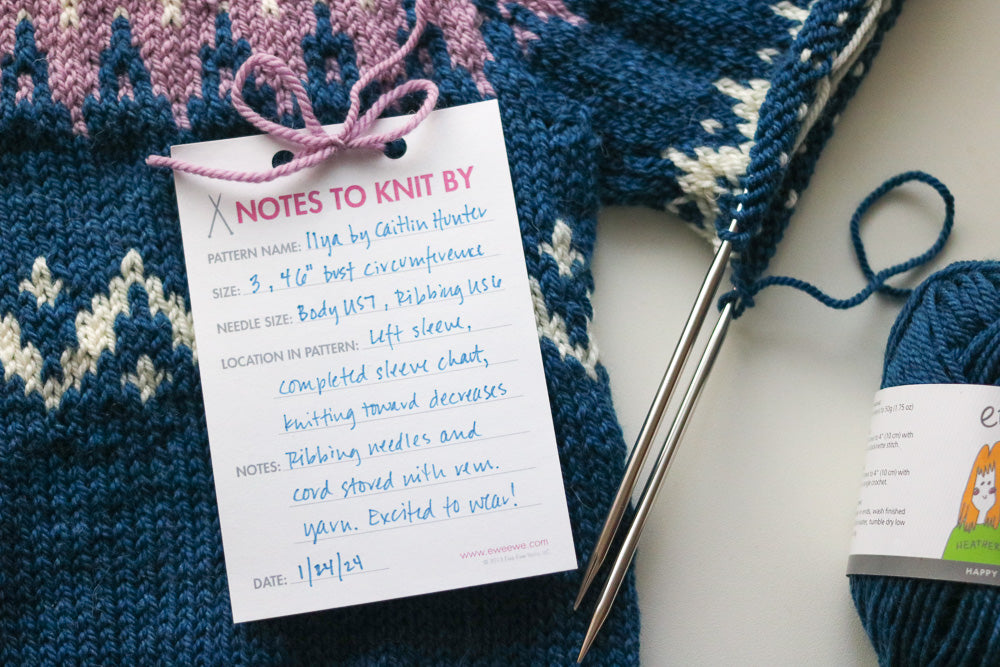 NOTES TO KNIT BY
PATTERN NAME: Ilya by Caitlin Hunter
SIZE: 3, 46" bust circumference
NEEDLE SIZE: Body US7, Ribbing US6
LOCATION IN PATTERN: Left sleeve,
completed sleeve chart,
knitting toward decreases
NOTES: Ribbing needles and
cord stored with rem.
yarn. Excited to wear!
www.eweewe.com
DATE: 1/24/24
to 50g (1.75 oz)
to 4" (10 cm) with
to 4" (10 cm) with
crochet.
ends, wash finished
water, tumble dry low
HEATHER
HAPPY